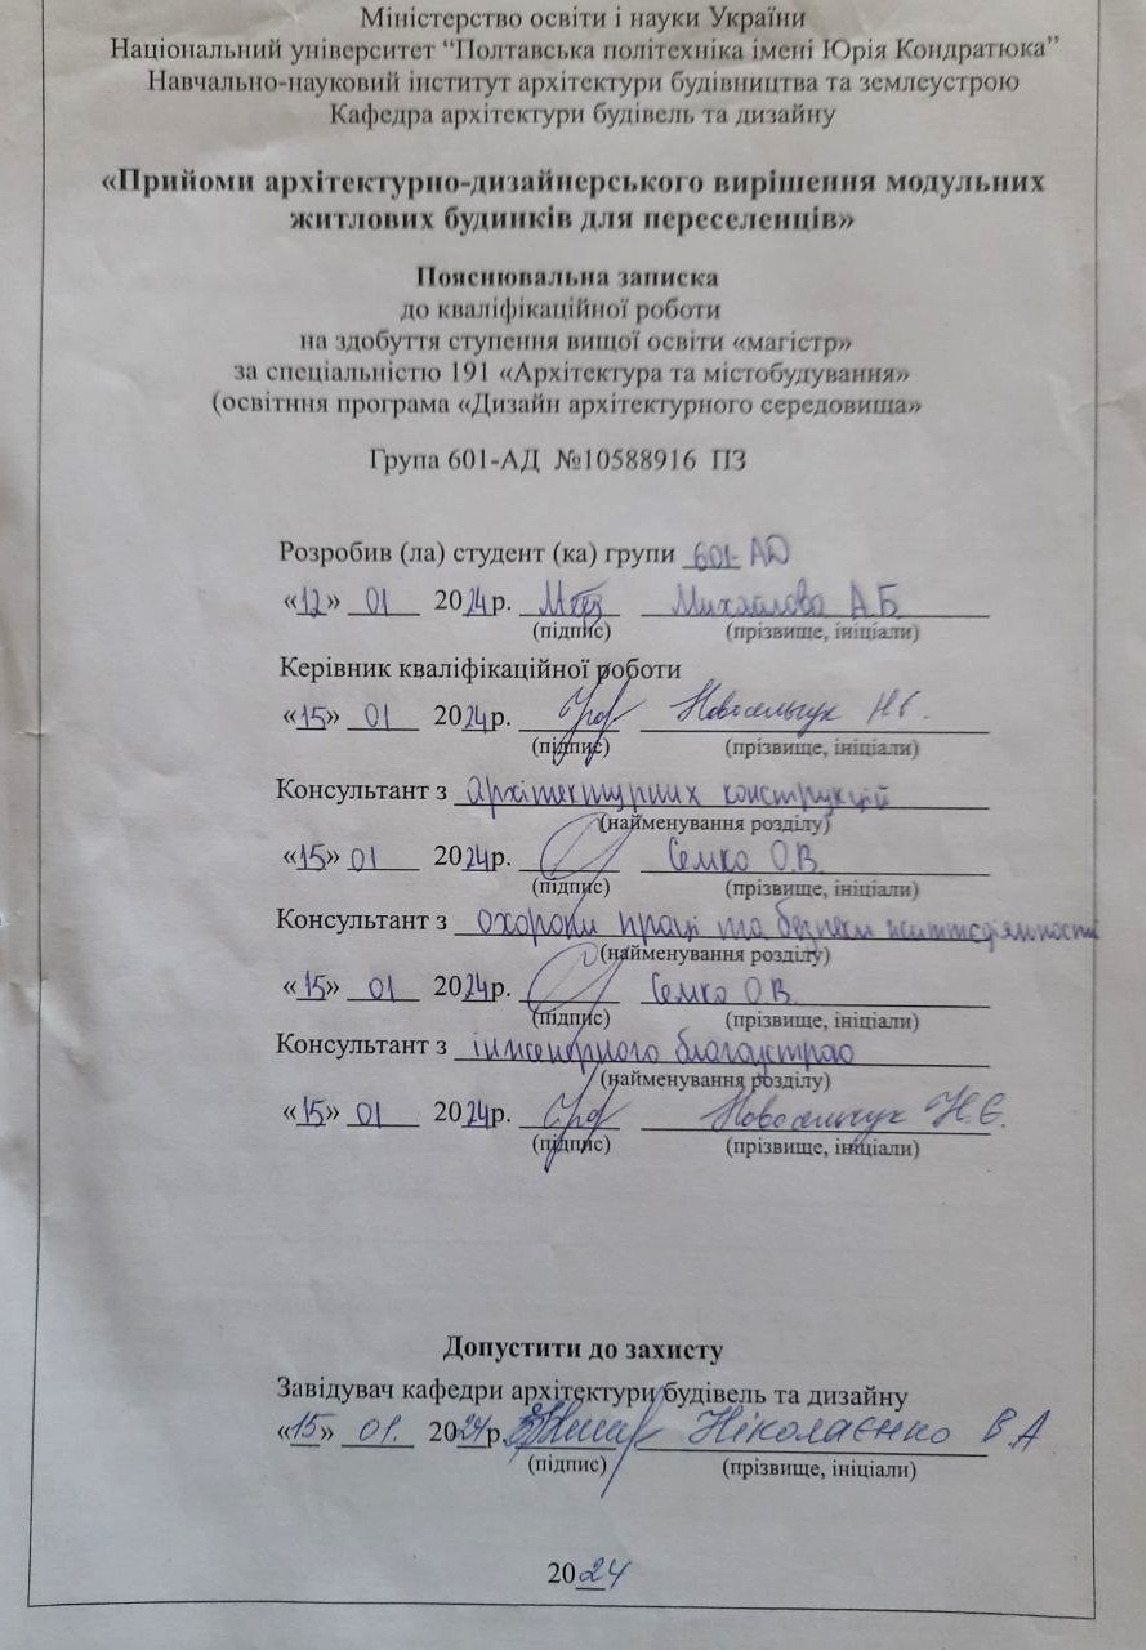 Міністерство освіти і науки України
Національний університет “Полтавська політехніка імені Юрія Кондратюка”
Навчально-науковий інститут архітектури будівництва та землеустрою
Кафедра архітектури будівель та дизайну
«Прийоми архітектурно-дизайнерського вирішення модульних
житлових будинків для переселенців»
Пояснювальна записка
до кваліфікаційної роботи
на здобуття ступення вищої освіти «магістр»
за спеціальністю 191 «Архітектура та містобудування»
(освітння програма «Дизайн архітектурного середовища»
Група 601-АД №10588916 ПЗ
Розробив (ла) студент (ка) групи 601-АД
«12» 01 2024р. Михайлова А.Б.
(підпис) (прізвище, ініціали)
Керівник кваліфікаційної роботи
«15» 01 2024р. Новосельчук Н.Є.
(підпис) (прізвище, ініціали)
Консультант з архітектурних конструкцій
(найменування розділу)
«15» 01 2024р. Семко О.В.
(підпис) (прізвище, ініціали)
Консультант з охорони праці та безпеки життєдіяльності
(найменування розділу)
«15» 01 2024р. Семко О.В.
(підпис) (прізвище, ініціали)
Консультант з інженерного благоустрою
(найменування розділу)
«15» 01 2024р. Новосельчук Н.Є.
(підпис) (прізвище, ініціали)
Допустити до захисту
Завідувач кафедри архітектури будівель та дизайну
«15» 01. 2024р Ніколаєнко В А
(підпис) (прізвище, ініціали)
2024